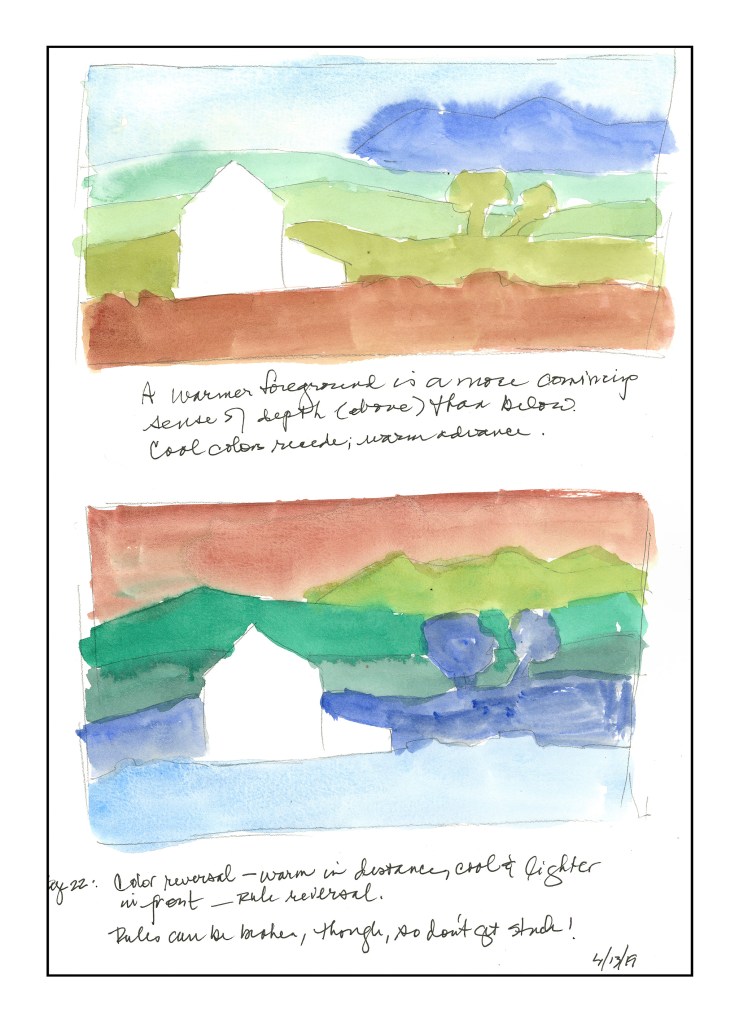 A warmer foreground is a more convincing
sense of depth (above) than below.
Cool colors recede; warm advance.
pg. 22: Color reversal - warm in distance, cool & lighter
in front - Rule reversal.
Rules can be broken, though, so don't get stuck!
4/13/19